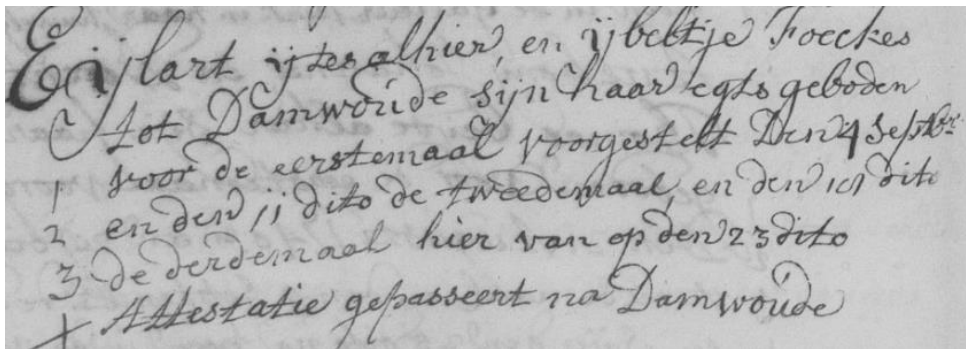 Eijlart ijtes alhier, en ijbeltje Foeckes
tot Damwoude sijn haar egts geboden
1 voor de eerstemaal voorgestelt Den 4 Septbr
2 en den 11 dito de tweedemaal, en den dito
3 de derdemaal hier van op den 23 dito
+ Attestatie gepasseert na Damwoude